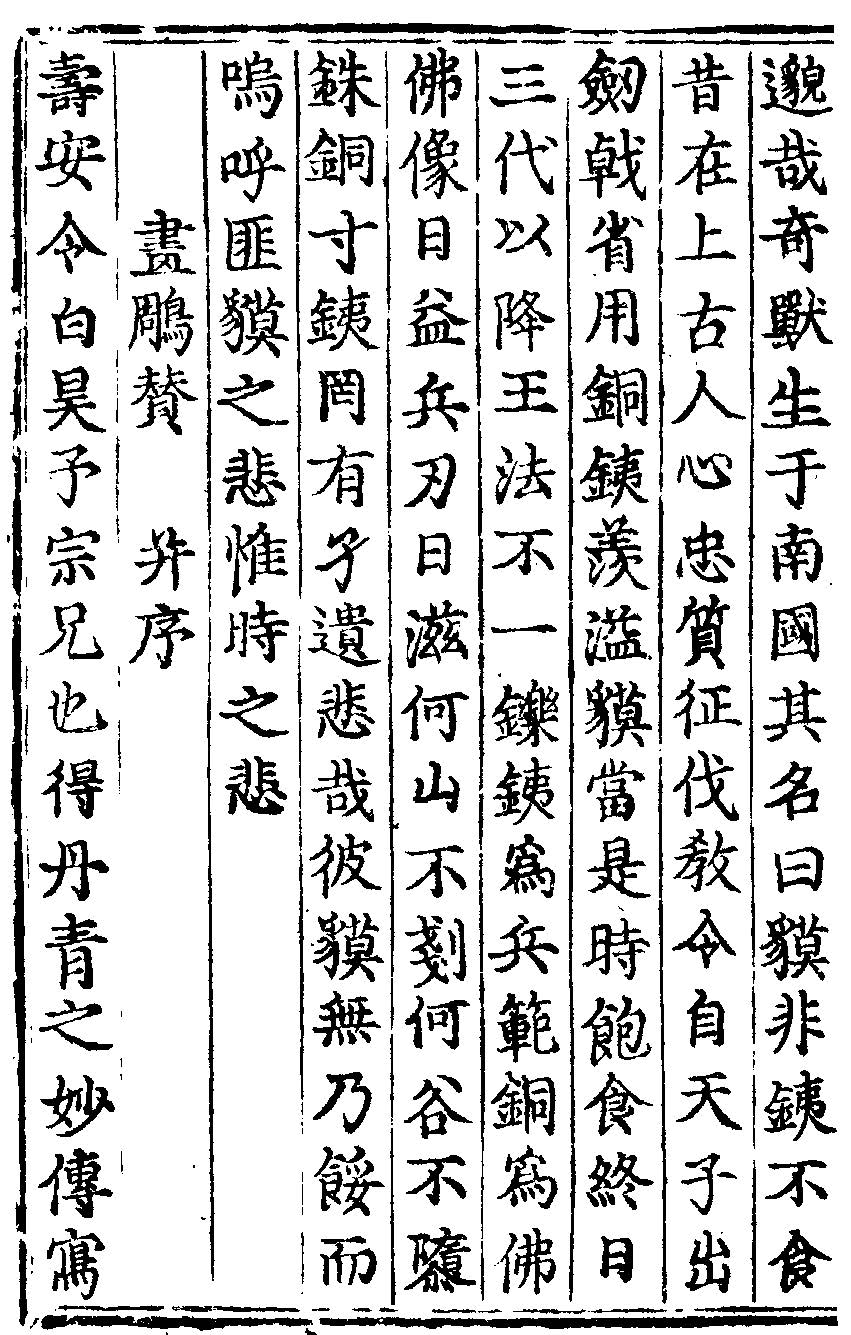 邈哉奇獸生于南國其名曰貘非銕不食
昔在上古人心忠質征伐教令自天子出
劒戟省用銅銕羨溢貘當是時飽食終日
三代以降王法不一鑠銕爲兵範銅爲佛
佛像日益兵刃日滋何山不剗何谷不隳
銖銅寸銕罔有孑遺悲哉彼貘無乃餒而
嗚呼匪貘之悲惟時之悲
畫鵰賛 并序
壽安令白昊予宗兄也得丹青之妙傳寫